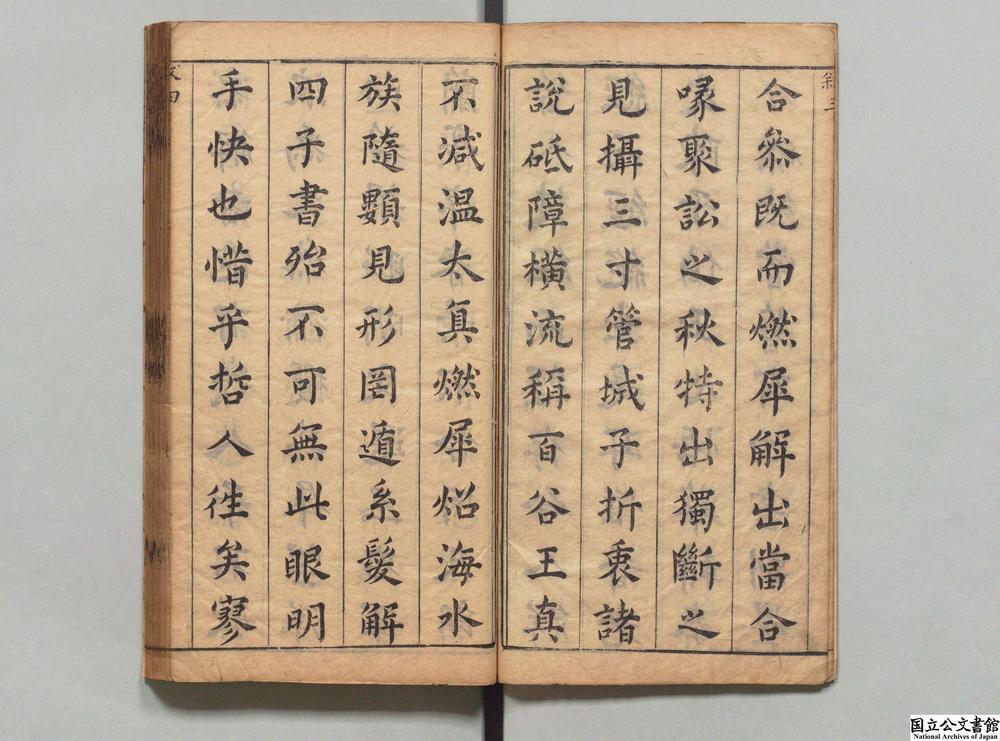 敘三
合參既而燃犀解出當合
喙聚訟之秋特出獨斷之
見攝三寸管城子折衷諸
說砥障橫流稱百谷王真
不減温太真燃犀炤海水
族隨顆見形罔遁系髮解
四子書殆不可無此眼明
手快也惜乎哲人徃矣寥
国立公文書館
National Archives of Japan